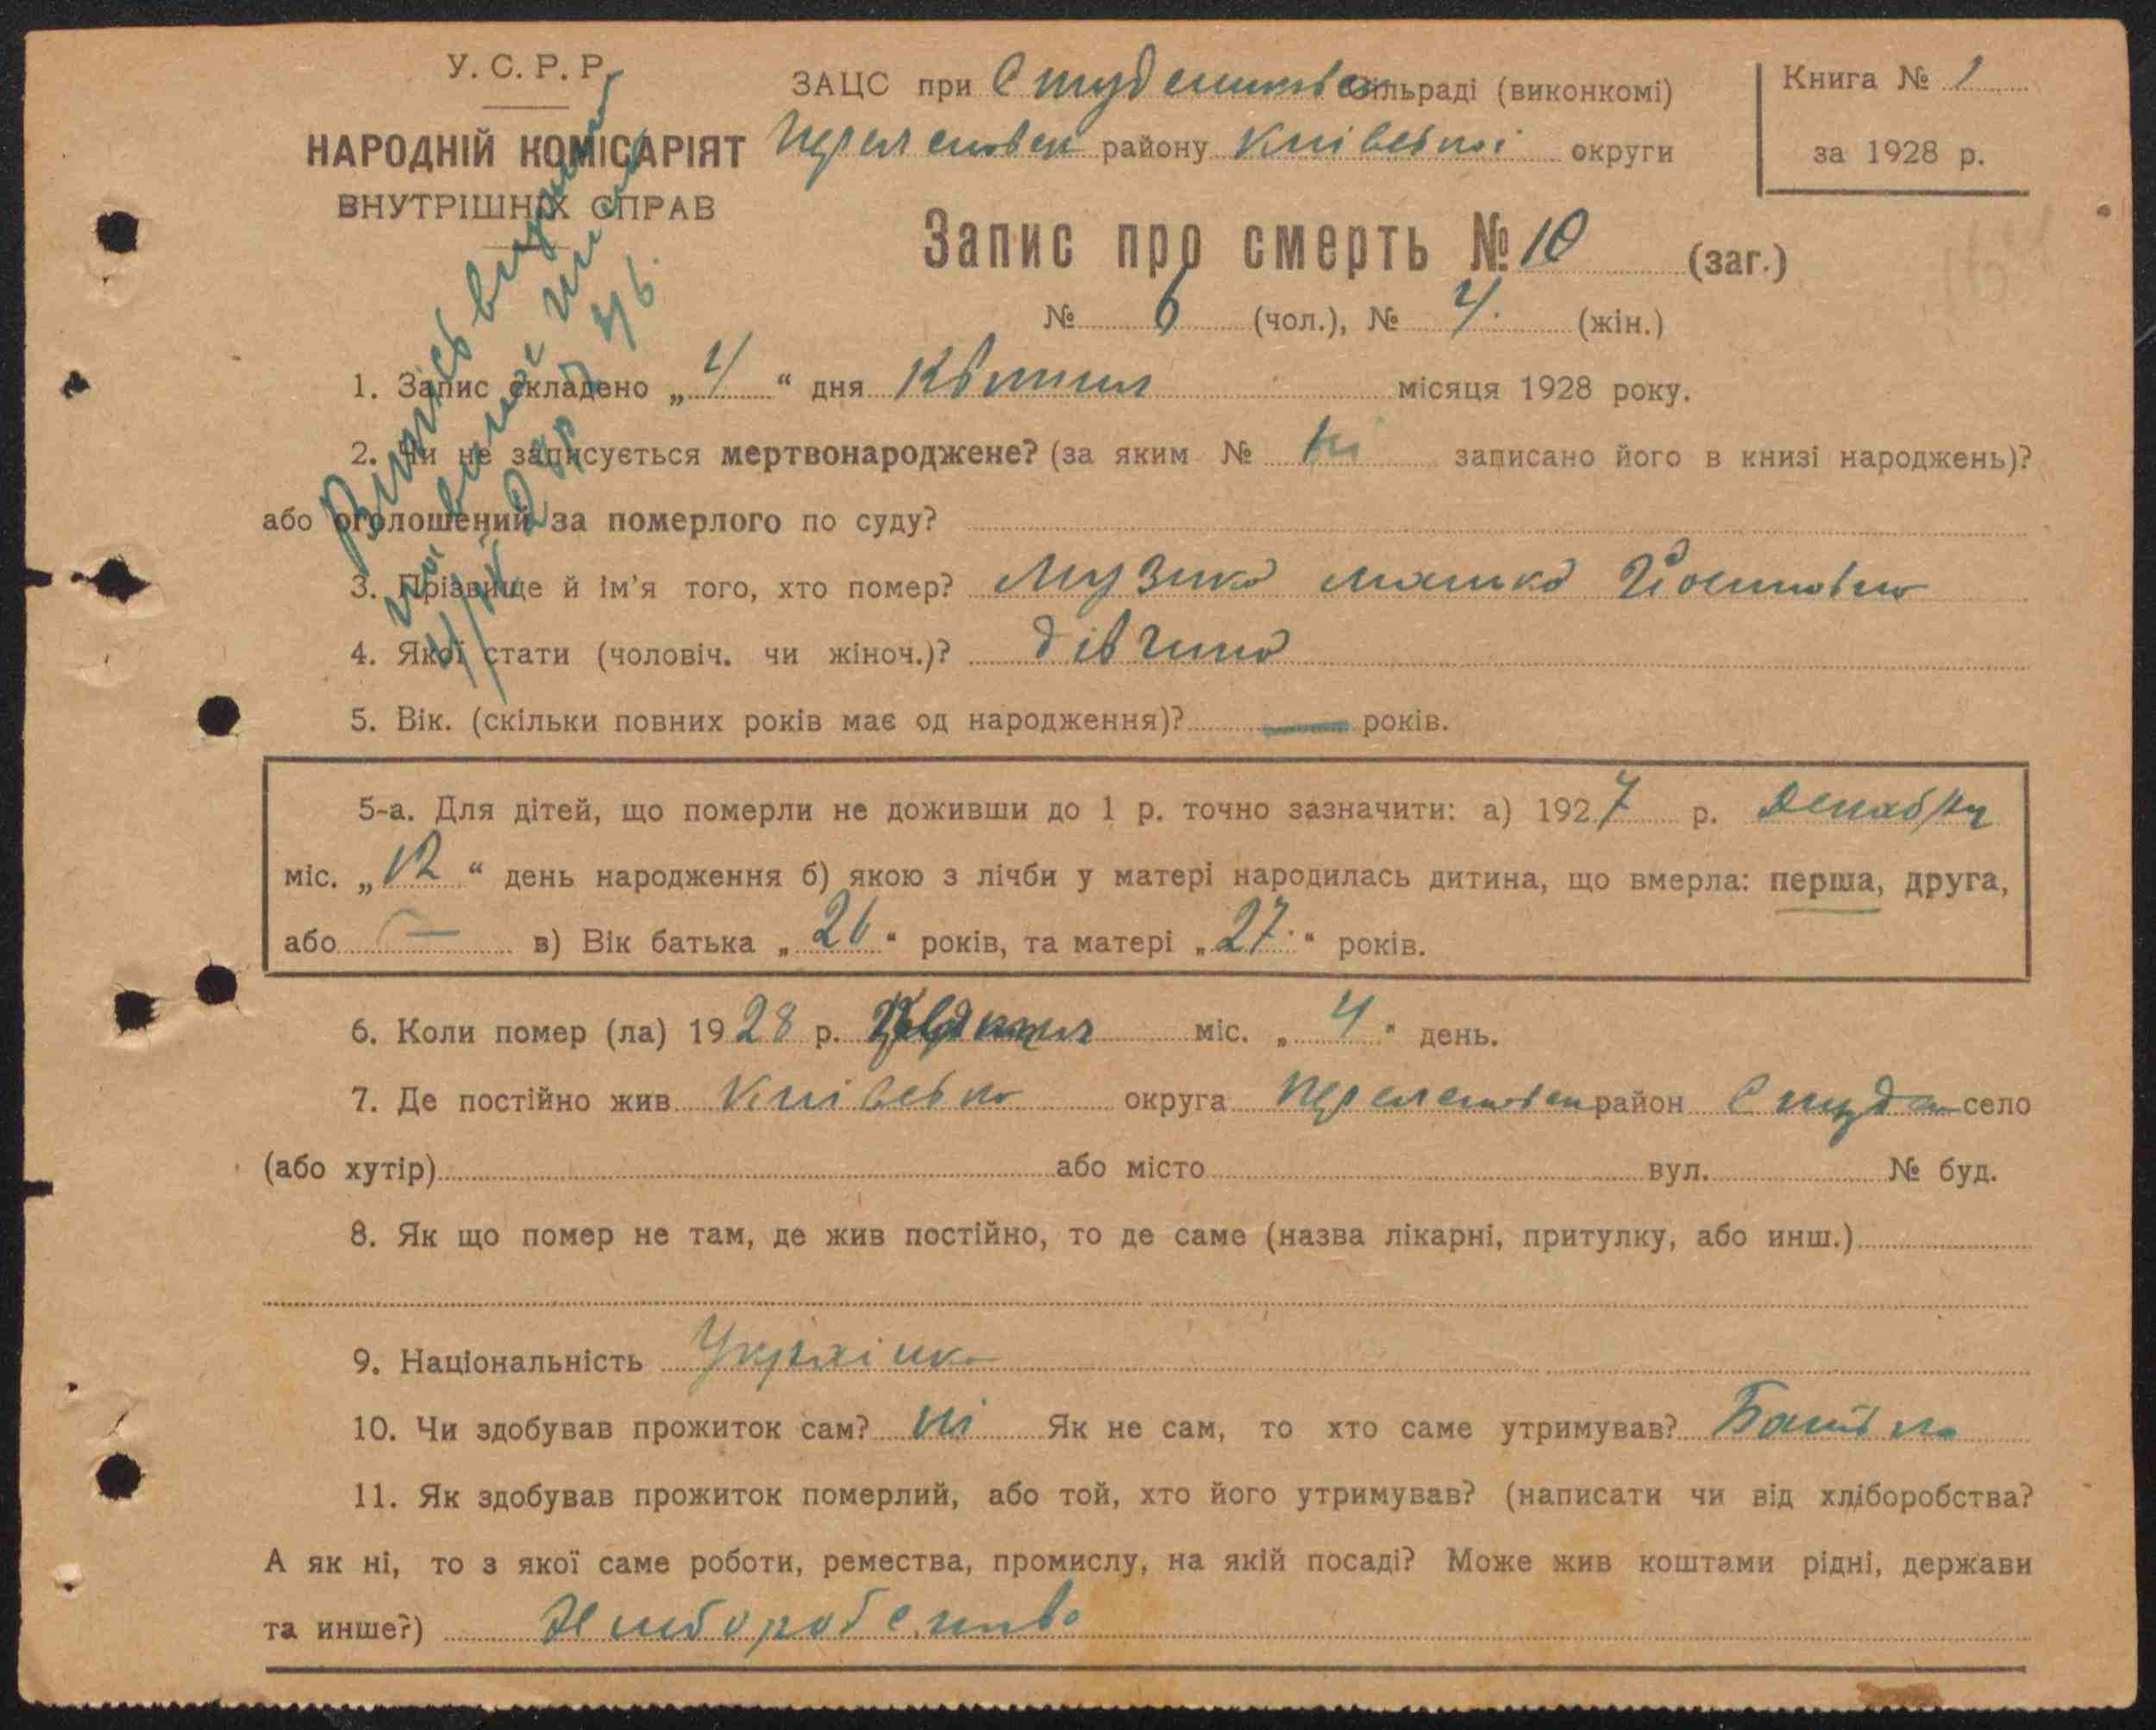 У.С.Р.Р.
НАРОДНІЙ КОМІСАРІЯТ
ВНУТРІШНІХ СПРАВ
ЗАЦС при Студениковск сільраді (виконкомі)
Переяславск району Київської округи
Книга № 1
за 1928 р.
Запис про смерть № 10 (заг.)
№ 6 (чол.), № 4. (жін.)
1. Запис складено „4“ дня Квітня місяця 1928 року.
2. Чи не записується мертвонароджене? (за яким № ні записано його в книзі народжень)?
або оголошений за померлого по суду?
3. Прізвище й ім'я того, хто помер? Музика Йосиповна
4. Якої стати (чоловіч. чи жіноч.)? дівчина
5. Вік. (скільки повних років має од народження)? — років.
5-а. Для дітей, що померли не доживши до 1 р. точно зазначити: а) 1927 р. Декабря
міс. „12“ день народження б) якою з лічби у матері народилась дитина, що вмерла: перша, друга,
або — в) Вік батька „26“ років, та матері „27“ років.
6. Коли помер (ла) 1928 р. міс. „4“ день.
7. Де постійно жив Київська округа Переяславск район Студен село
(або хутір) або місто вул. № буд.
8. Як що помер не там, де жив постійно, то де саме (назва лікарні, притулку, або инш.)
9. Національність Українка
10. Чи здобував прожиток сам? ні Як не сам, то хто саме утримував? Батько
11. Як здобував прожиток померлий, або той, хто його утримував? (написати чи від хліборобства?
А як ні, то з якої саме роботи, ремества, промислу, на якій посаді? Може жив коштами рідні, держави
та инше?) Хліборобство